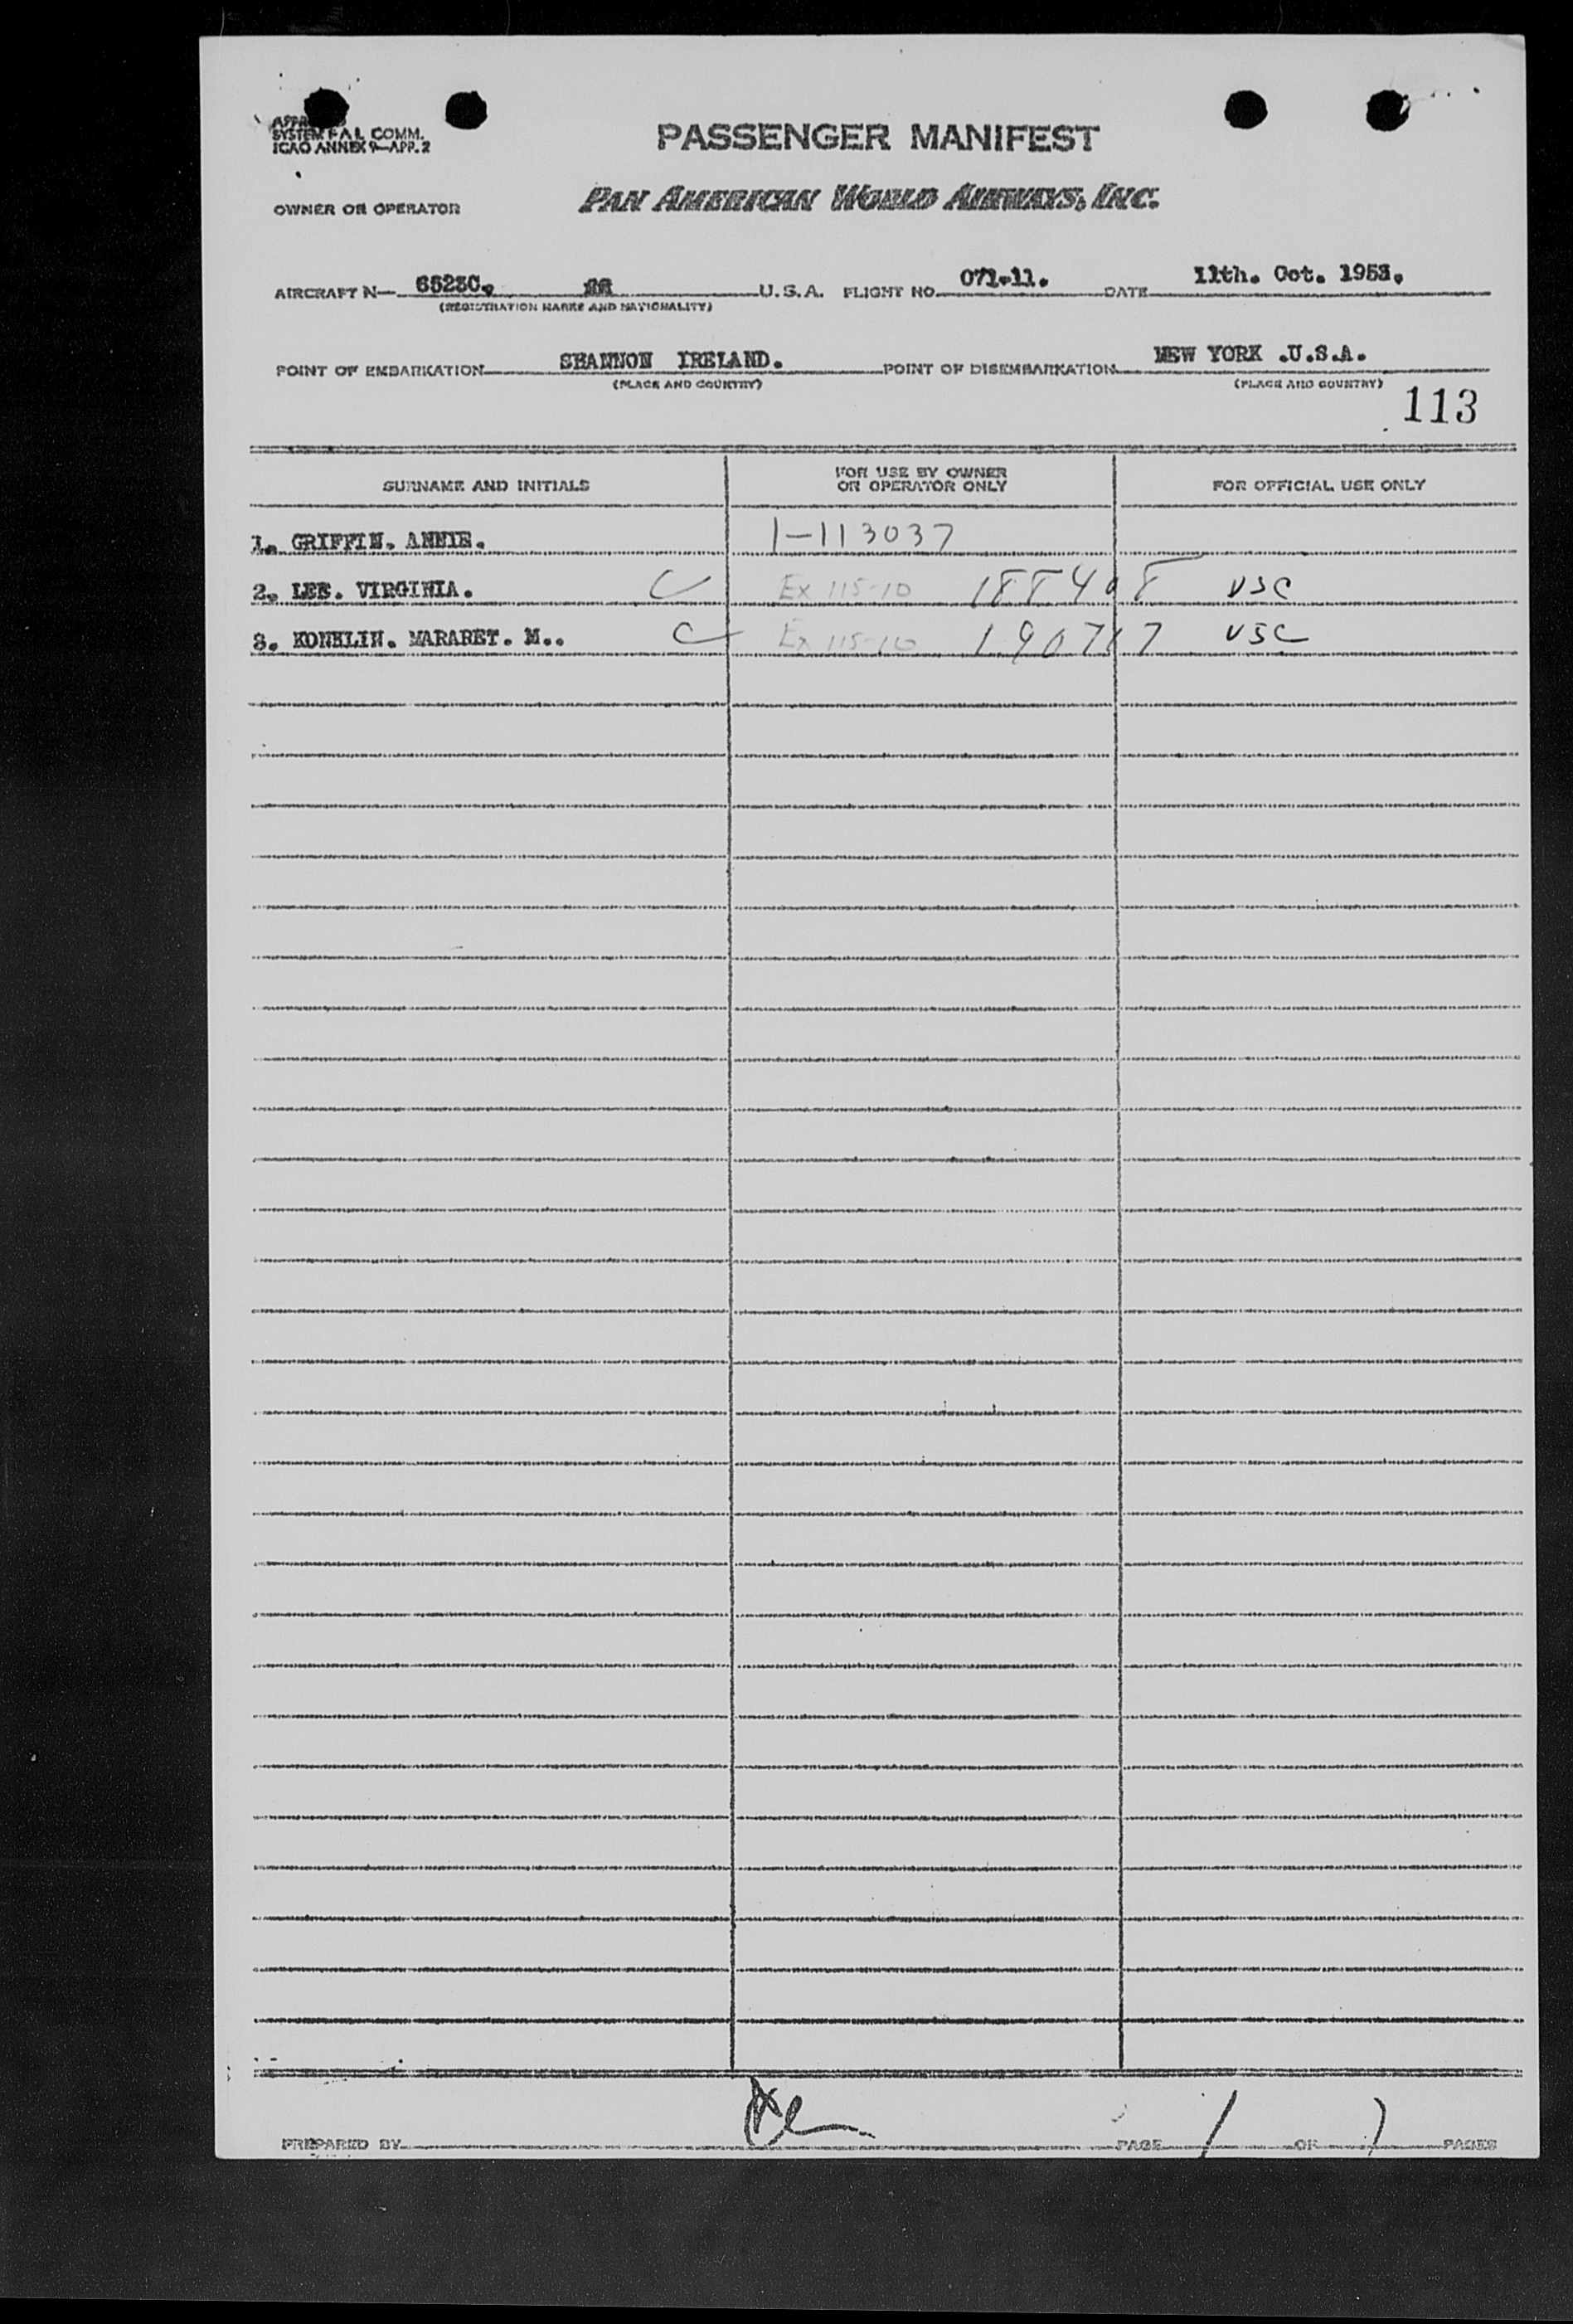 SYSTEM FAL COMM.
ICAO ANNEX 9—APP. 2
PASSENGER MANIFEST
OWNER OR OPERATOR PAN AMERICAN WORLD AIRWAYS, INC.
AIRCRAFT N— 6523C. U.S.A. FLIGHT NO. 071-11. DATE 11th. Oct. 1953.
(REGISTRATION MARKS AND NATIONALITY)
POINT OF EMBARKATION SHANNON IRELAND. POINT OF DISEMBARKATION NEW YORK .U.S.A.
(PLACE AND COUNTRY) (PLACE AND COUNTRY)
113
SURNAME AND INITIALS FOR USE BY OWNER OR OPERATOR ONLY FOR OFFICIAL USE ONLY
1. GRIFFIN. ANNIE. 1-113037
2. LEE. VIRGINIA. C Ex 115-10 188408 USC
3. KONHLIN. MARARET. M.. C Ex 115-10 190717 USC
PREPARED BY PAGE 1 OF 1 PAGES